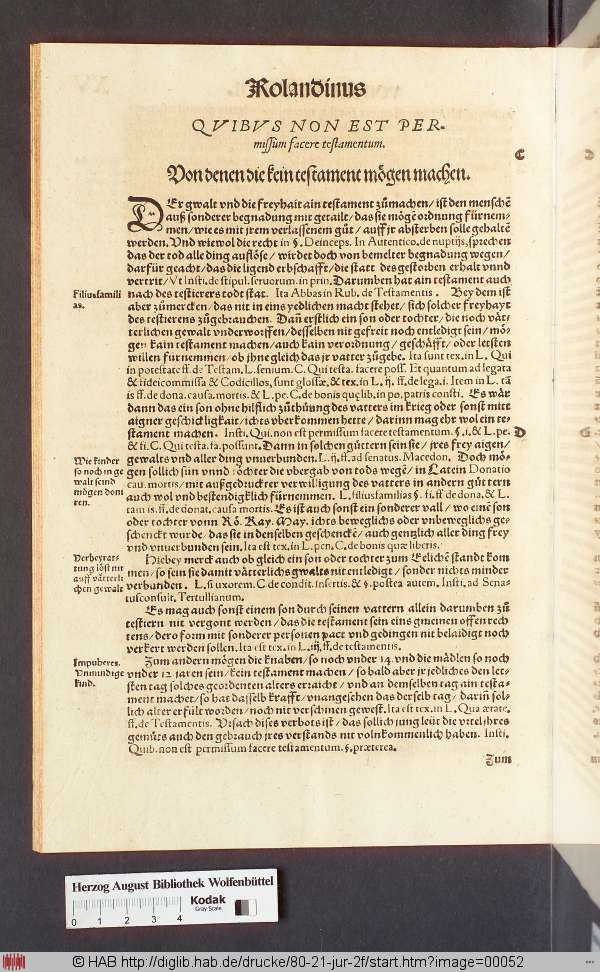 Rolandinus
QVIBVS NON EST PER-
missum facere testamentum.
Von denen die kein testament mögen machen.
DEr gwalt vnd die freyhait ain testament zůmachen / ist den menschē
auß sonderer begnadung mit getailt / das sie mögē ordnung fürnem-
men / wie es mit jrem verlassenem gůt / auff jr absterben solle gehaltē
werden. Vnd wiewol die recht in §. Deinceps. In Autentico. de nuptijs, sprechen
das der tod alle ding auflöse / wirdet doch von bemelter begnadung wegen /
darfür geacht / das die ligend erbschafft / die statt des gestorben erhalt vnnd
vertrit / Vt Insti. de stipul. seruorum. in prin. Darumben hat ain testament auch
Filiusfamili
as.
nach des testierers todt stat. Ita Abbas in Rub. de Testamentis. Bey dem ist
aber zůmercken / das nit in eins yedlichen macht stehet / sich solcher freyhayt
des testierens zůgebrauchen. Dañ erstlich ein son oder tochter / die noch vät-
terlichen gewalt vnderworffen / desselben nit gefreit noch entledigt sein / mö-
gen kain testament machen / auch kain verordnung / geschäfft / oder letsten
willen fürnemmen / ob jhne gleich das jr vatter zůgebe. Ita sunt tex. in L. Qui
in potestate ff. de Testam. L. senium. C. Qui testa. facere poss. Et quantum ad legata
& fideicommissa & Codicillos, sunt glossæ, & tex. in L. ij. ff. de lega. i. Item in L. tā
is ff. de dona. causa. mortis. & L. pe. C. de bonis quę lib. in po. patris consti. Es wär
dann das ein son ohne hilflich zůthůung des vatters im krieg oder sonst mitt
aigner geschickligkait / ichts vberkommen hette / darinn mag ehr wol ein te-
stament machen. Insti. Qui. non est permissum facere testamentum. §. i. & L. pe.
& fi. C. Qui testa. fa. possunt. Dann in solchen güttern sein sie / jres frey aigen /
Wie kinder
so noch in ge
walt seind
mögen doni
ren.
gewalts vnd aller ding vnuerbunden. L. ij. ff. ad senatus. Macedon. Doch mö-
gen sollich sün vnnd töchter die vbergab von tods wegē / in Latein Donatio
cau. mortis / mit außgedruckter verwilligung des vatters in andern güttern
auch wol vnd bestendigklich fürnemmen. L. filiusfamilias §. fi. ff. de dona. & L.
tam is. ff. de donat. causa mortis. Es ist auch sonst ein sonderer vall / wo eine son
oder tochter vonn Rö. Kay. May. ichts beweglichs oder vnbeweglichs ge-
schenckt wurde / das sie in denselben geschencke / auch gentzlich aller ding frey
vnd vnuerbunden sein. Ita est tex. in L. pen. C. de bonis quæ liberis.
Verheyrat-
tung löst nit
auff vätterli-
chen gewalt
Hiebey merck auch ob gleich ein son oder tochter zum Eelichē stande kom
men / so sein sie damit vätterlichs gwalts nit entledigt / sonder nichts minder
verbunden. L. si uxorem. C de condit. insertis. & §. postea autem. Insti. ad Sena-
tusconsuit. Tertullianum.
Es mag auch sonst einem son durch seinen vattern allein darumben zů
testiern nit vergont werden / das die testament sein eins gmeinen offen rech
tens / dero form mit sonderer personen pact vnd gedingen nit belaidigt noch
verkert werden sollen. Ita est tex. in L. iij. ff. de testamentis.
Impuberes.
Vnmundige
kind.
Zum andern mögen die knaben / so noch vnder 14. vnd die mädlen so noch
vnder 12 jaren sein / kein testament machen / so bald aber jr jedliches den let-
sten tag solches geordenten alters erraicht / vnd an demselben tag ain testa
ment machet / so hat dasselb krafft / vnangesehen das derselb tag / dariñ sol-
lich alter erfült worden / noch nit verschinen gewest. Ita est tex. in L. Qua ætate.
ff. de Testamentis. Vrsach dises verbots ist / das sollich jung leüt die vrteil jhres
gemüts auch den gebrauch jres verstands nit volnkommenlich haben. Insti.
Quib. non est permissum facere testamentum. §. præterea.
Zum
Herzog August Bibliothek Wolfenbüttel
Kodak
Gray Scale
0 1 2 3 4
© HAB http://diglib.hab.de/drucke/80-21-jur-2f/start.htm?image=00052